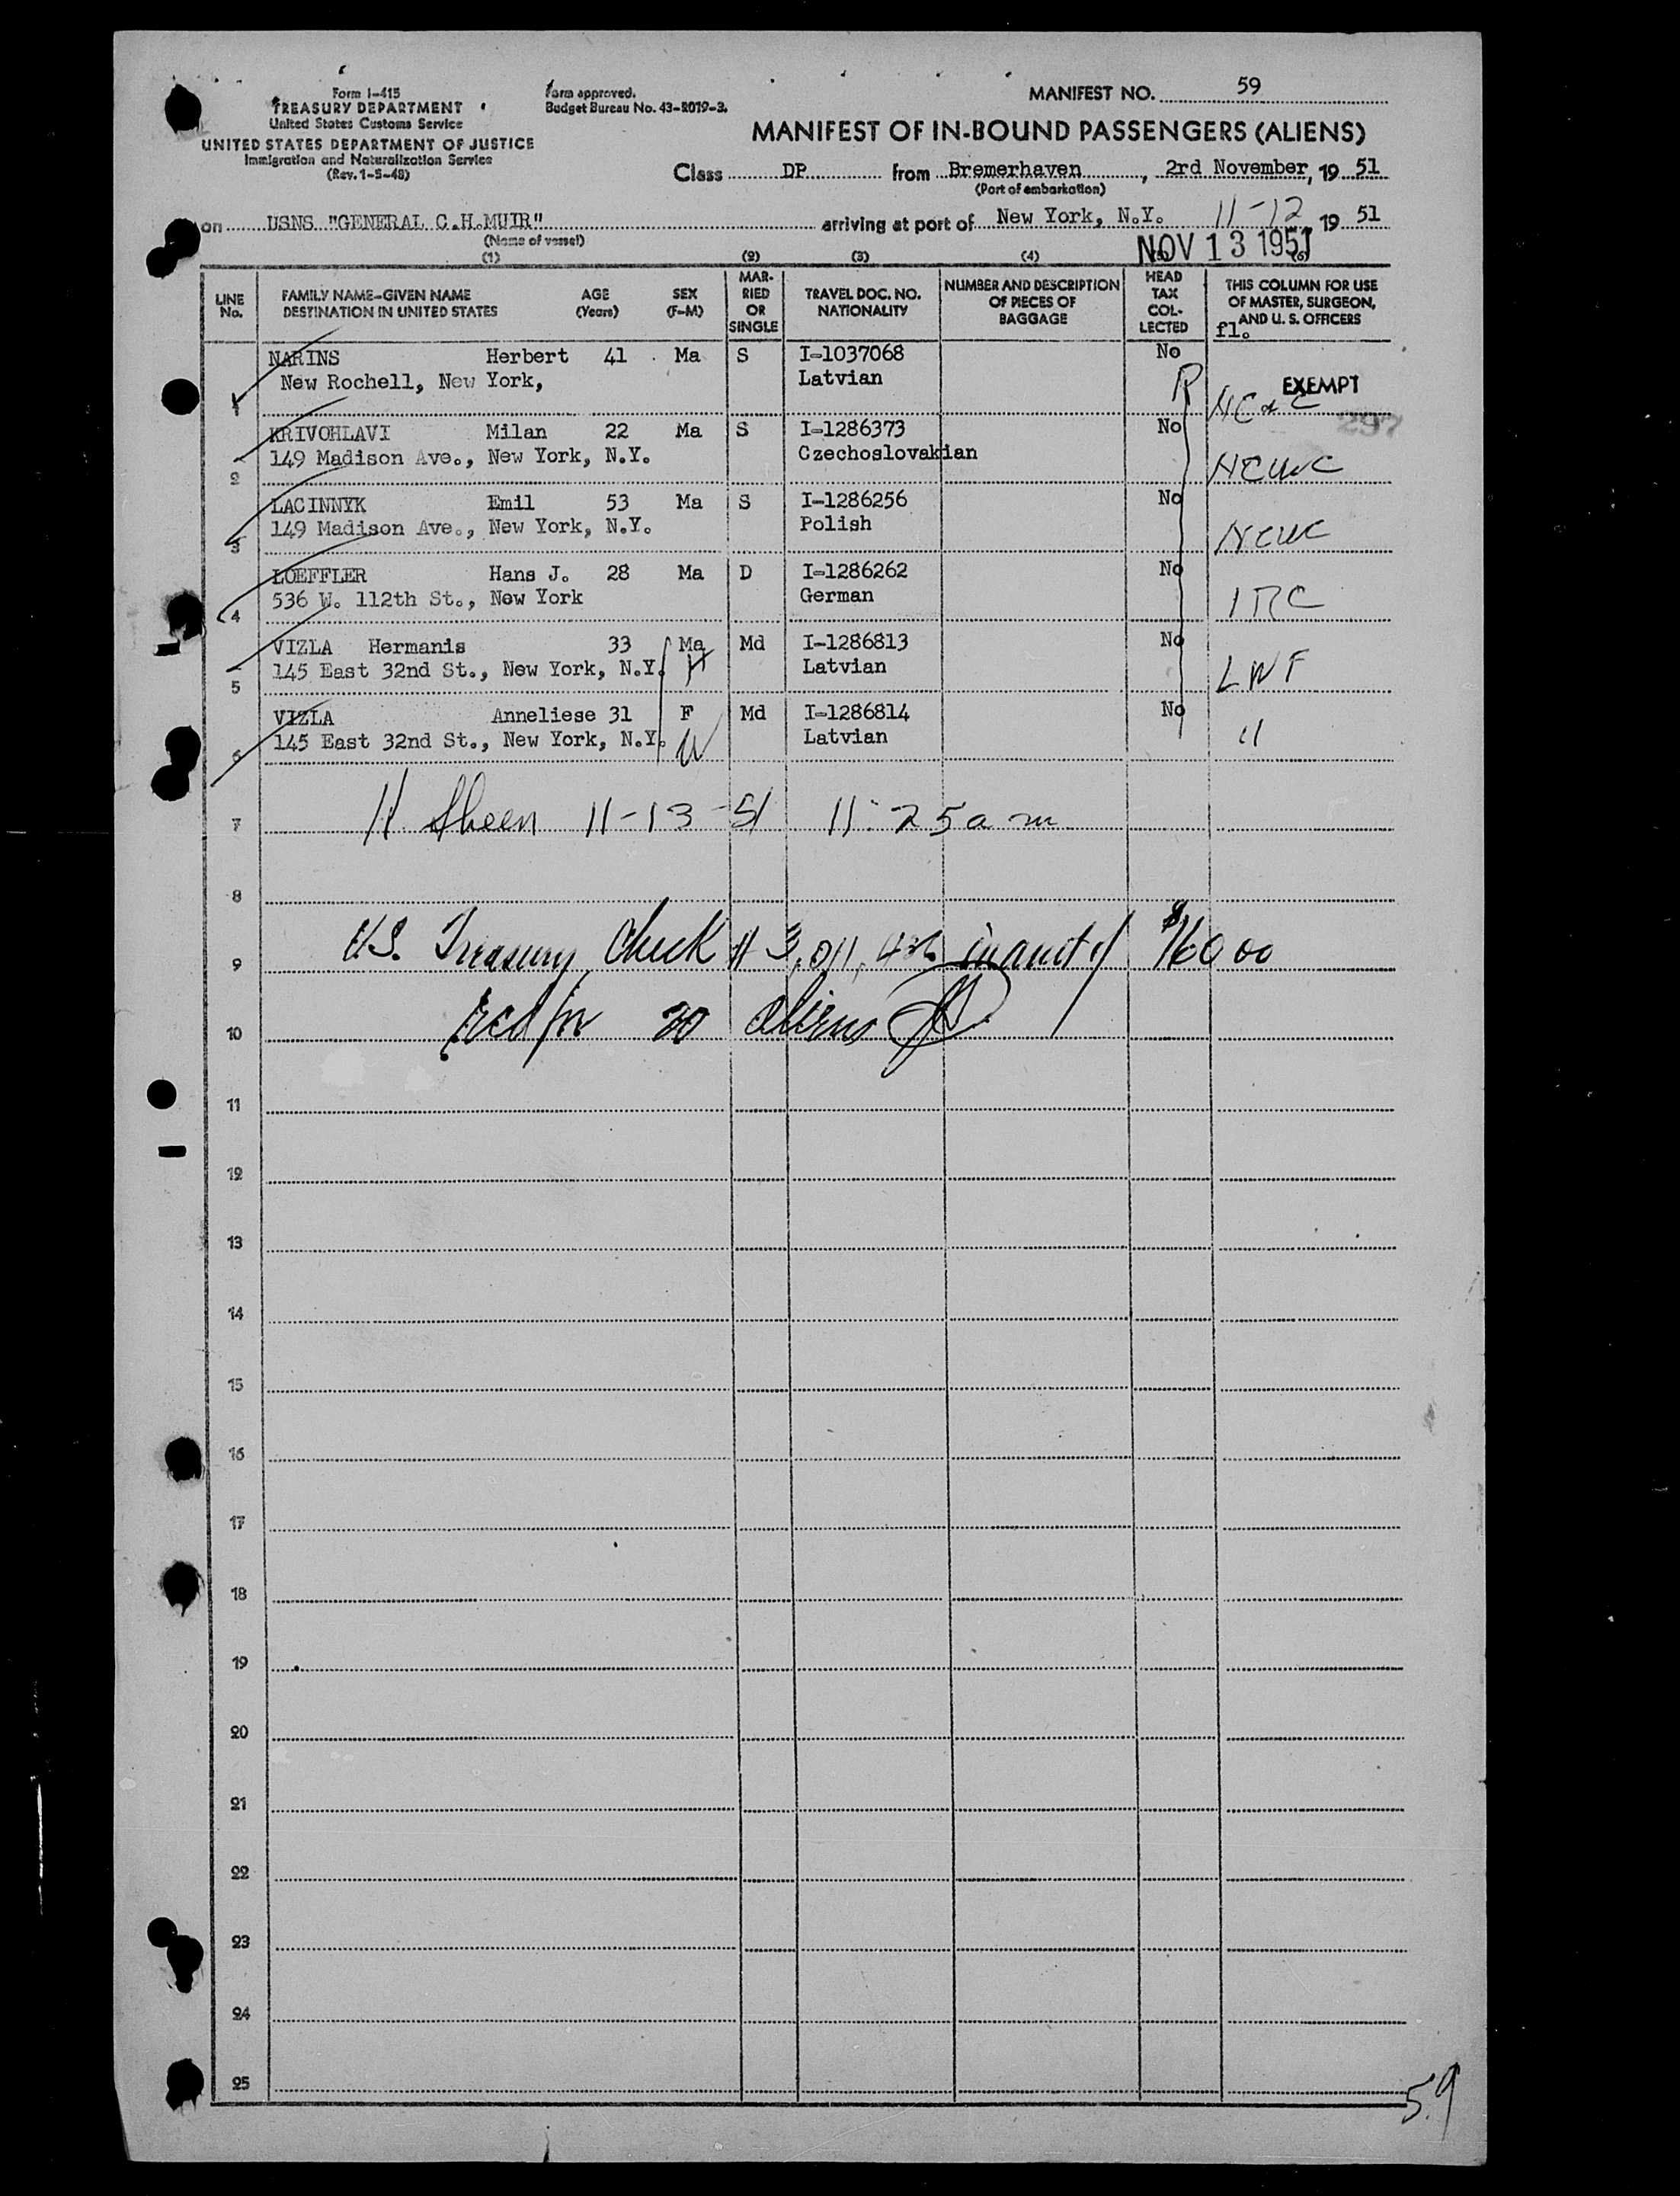 Form I-415
TREASURY DEPARTMENT
United States Customs Service
UNITED STATES DEPARTMENT OF JUSTICE
Immigration and Naturalization Service
(Rev. 1-5-48)
Form approved.
Budget Bureau No. 43-R019-3.
MANIFEST NO. 59
MANIFEST OF IN-BOUND PASSENGERS (ALIENS)
Class DP from Bremerhaven, 2rd November, 19 51
(Port of embarkation)
on USNS "GENERAL C.H.MUIR" arriving at port of New York, N.Y. 11-12 19 51
(Name of vessel)
NOV 13 1951
(1) (2) (3) (4) (6)
LINE No. FAMILY NAME-GIVEN NAME DESTINATION IN UNITED STATES AGE (Years) SEX (F-M) MARRIED OR SINGLE TRAVEL DOC. NO. NATIONALITY NUMBER AND DESCRIPTION OF PIECES OF BAGGAGE HEAD TAX COLLECTED THIS COLUMN FOR USE OF MASTER, SURGEON, AND U. S. OFFICERS
fl.
NARINS Herbert 41 Ma S I-1037068 No
1 New Rochell, New York, Latvian R EXEMPT
297
KRIVOHLAVI Milan 22 Ma S I-1286373 No
2 149 Madison Ave., New York, N.Y. Czechoslovakian NCWC
LACINNYK Emil 53 Ma S I-1286256 No
3 149 Madison Ave., New York, N.Y. Polish NCWC
LOEFFLER Hans J. 28 Ma D I-1286262 No
4 536 W. 112th St., New York German IRC
VIZLA Hermanis 33 Ma Md I-1286813 No
5 145 East 32nd St., New York, N.Y. H Latvian LWF
VIZLA Anneliese 31 F Md I-1286814 No
6 145 East 32nd St., New York, N.Y. W Latvian "
7 H. Sheen 11-13-51 11:25 a m
8
9 U.S. Treasury Check # in amt of $160 00
10 recd for 20 aliens
11
12
13
14
15
16
17
18
19
20
21
22
23
24
25
59